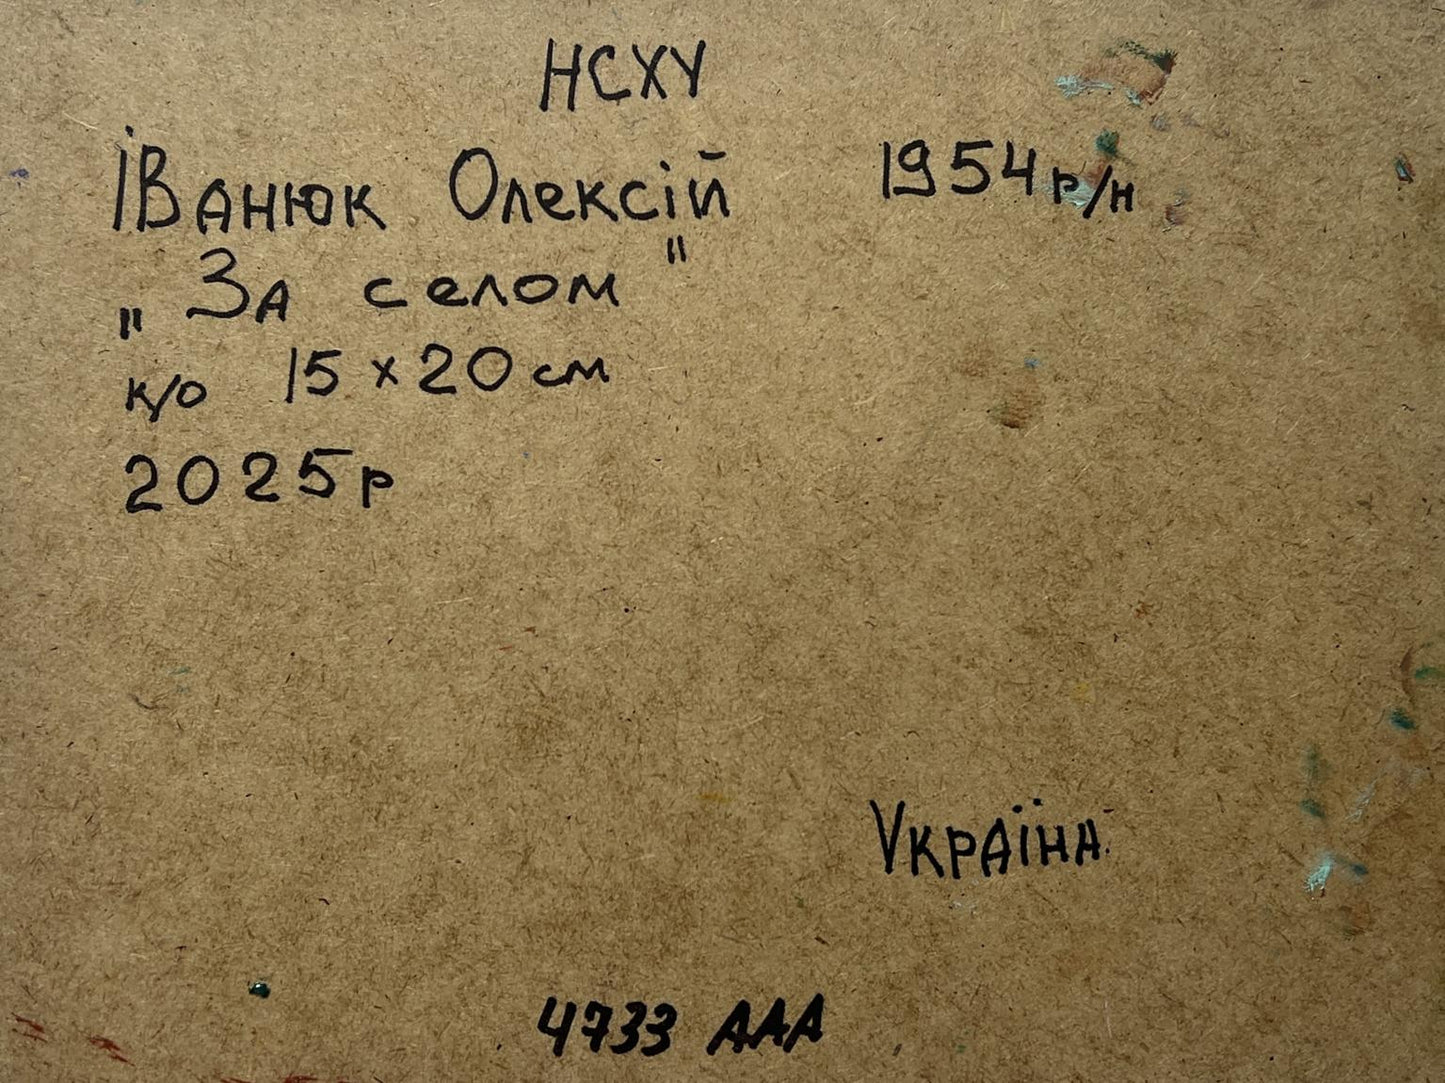 НСХУ
Іванюк Олексій 1954 р/н
„За селом"
к/о 15 х 20 см
2025р
Україна
4733 ААА